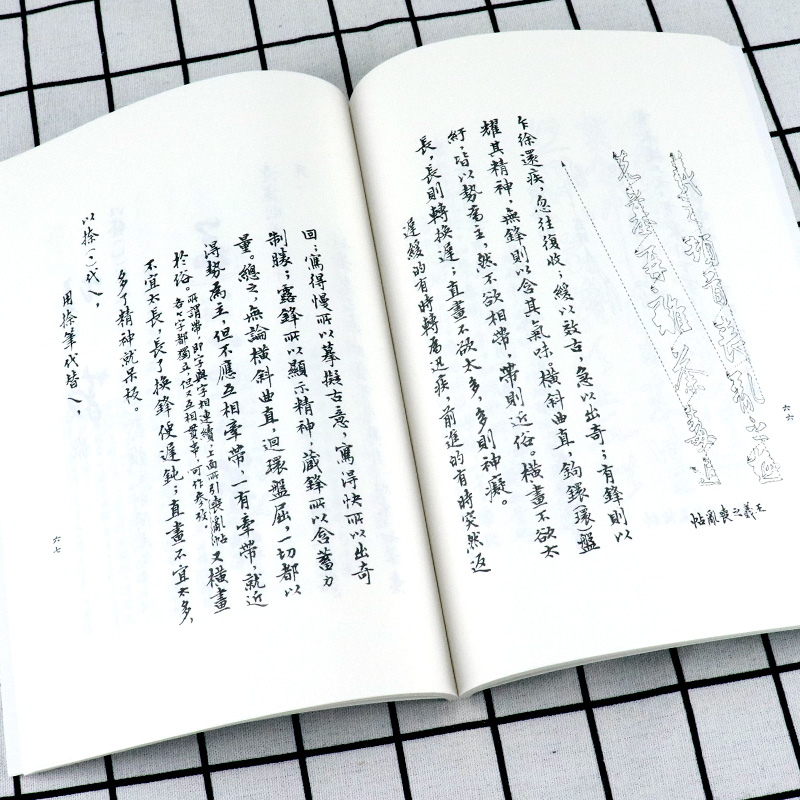 羲之頓首喪亂之極
先墓再離荼毒追
王羲之喪亂帖
六六
乍徐還疾,忽往復收;緩以效古,急以出奇;有鋒則以
耀其精神,無鋒則以含其氣味。橫斜曲直,鈎鐶(環)盤
紆,皆以勢為主,然不欲相帶,帶則近俗。橫畫不欲太
長,長則轉換遲;直畫不欲太多,多則神癡。
遲緩的有時轉為迅疾,前進的有時突然返
回;寫得慢所以摹擬古意,寫得快所以出奇
制勝;露鋒所以顯示精神,藏鋒所以含蓄力
量。總之,無論橫斜曲直,迴環盤屈,一切都以
得勢為主,但不應互相牽帶,一有牽帶,就近
於俗。所謂帶,即字與字相連續,上面所引喪亂帖,各々字都獨立,但又互相貫串,可作參攷。又橫畫
不宜太長,長了換鋒便遲鈍;直畫不宜太多,
多了精神就呆板。
以捺(㇏)代乀,
用捺筆代皆乀,
六七